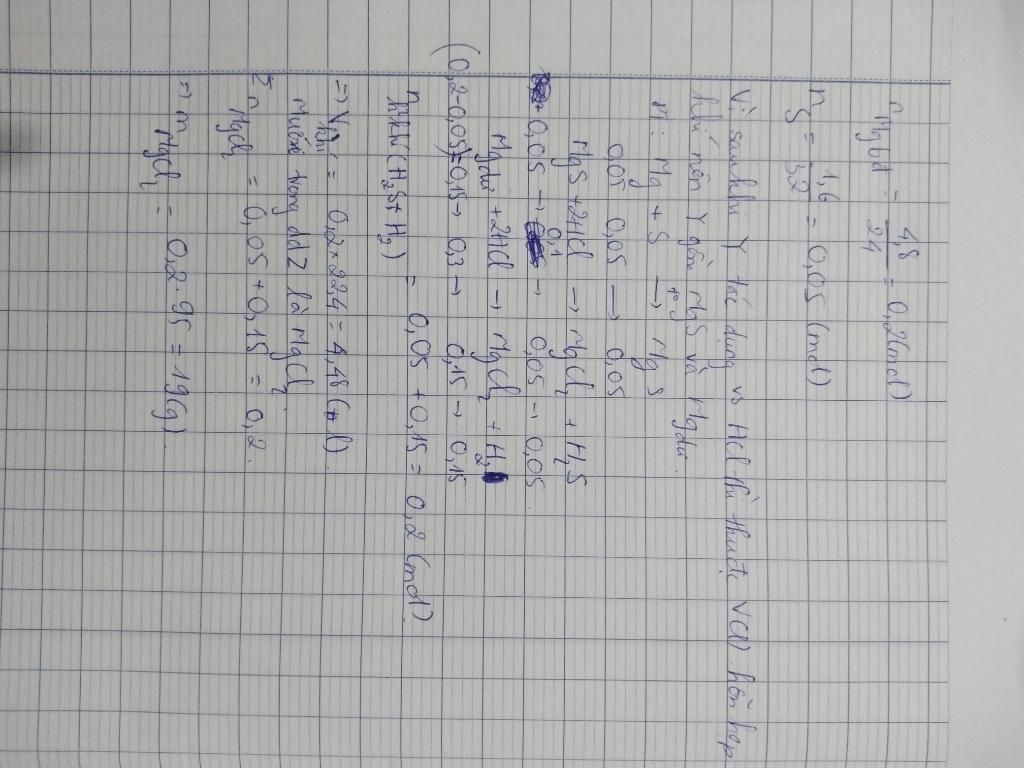 nMgbđ = 4,8/24 = 0,2(mol)
nS = 1,6/32 = 0,05 (mol)
Vì sau khi Y tác dụng vs HCl thì thu đc V(l) hỗn hợp
khí nên Y gồm MgS và Mg dư.
Mg + S →(t°) MgS
0,05 0,05 → 0,05
MgS + 2HCl → MgCl2 + H2S
0,05 → 0,1 → 0,05 → 0,05
Mg dư + 2HCl → MgCl2 + H2
(0,2-0,05)=0,15→ 0,3 → 0,15 → 0,15
n (H2S+H2) = 0,05 + 0,15 = 0,2 (mol)
=> V khí = 0,2×22,4 = 4,48 (l)
Muối trong ddZ là MgCl2
Σ nMgCl2 = 0,05 + 0,15 = 0,2.
=> m MgCl2 = 0,2 . 95 = 19(g).